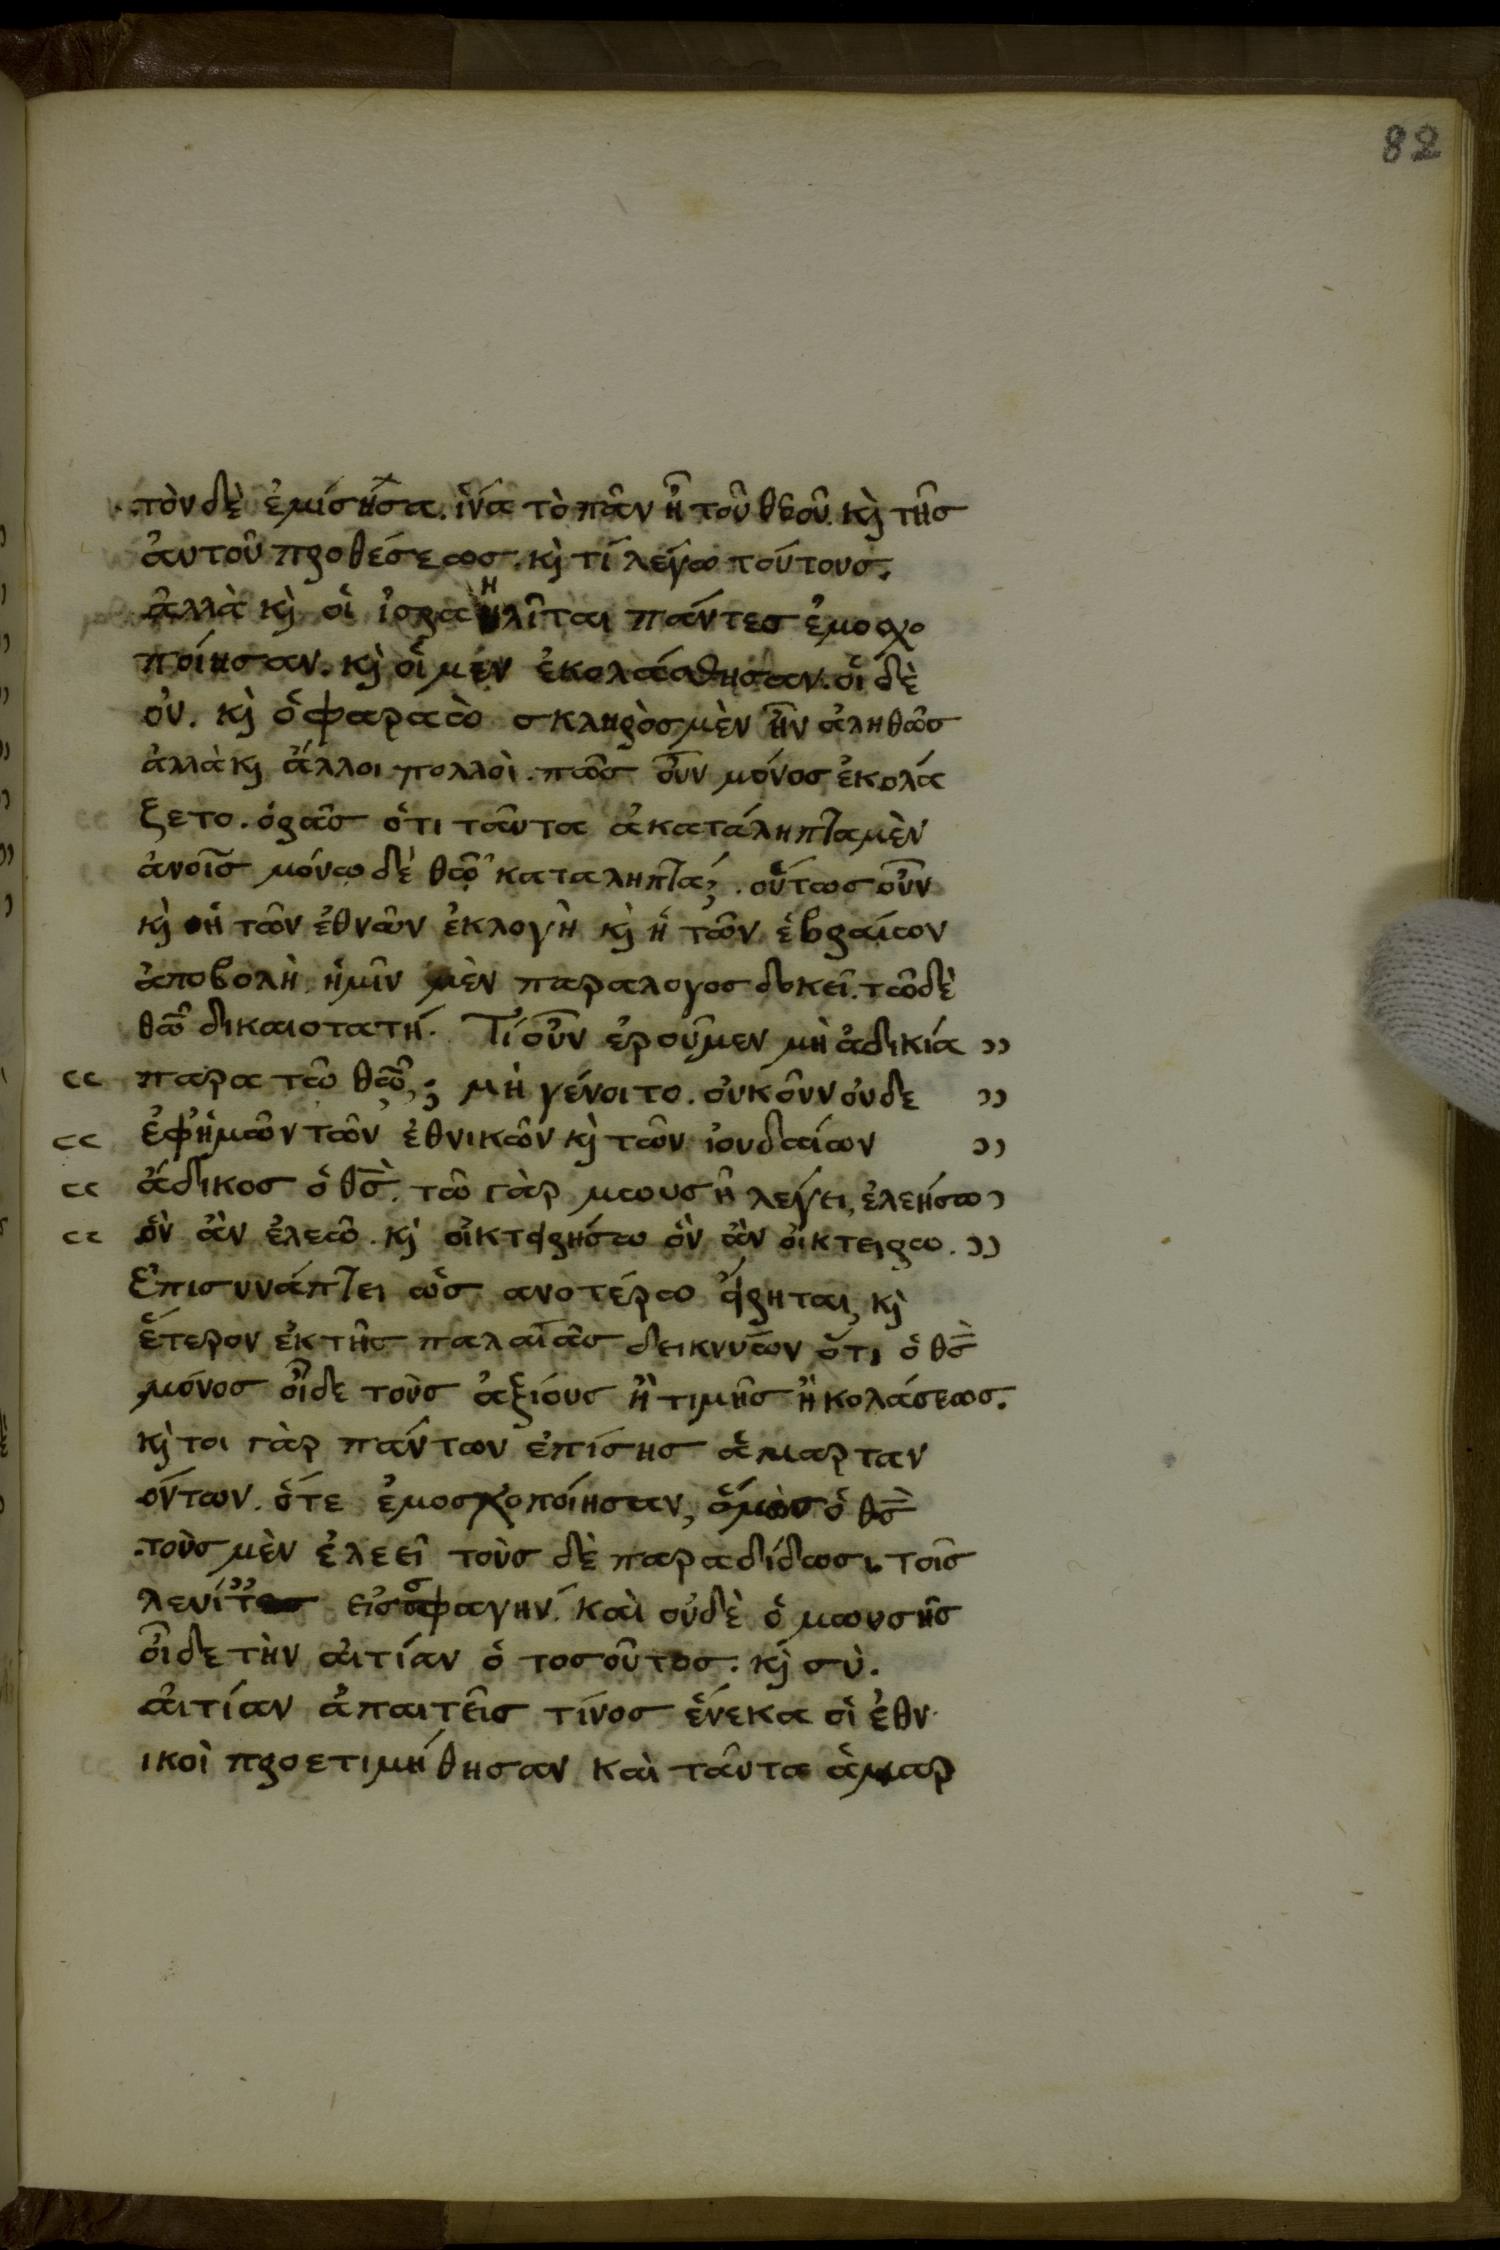 82
τὸν δὲ ἐμίσησα. ἵνα τὸ πᾶν ᾖ τοῦ θεοῦ. κὶ τῆς
ἀυτοῦ προθέσεως. κὶ τί λέγω τούτους.
ἀλλὰ κὶ οἱ ἰσραηλῖται πάντες ἐμοσχο
ποίησαν. κὶ οἱ μὲν ἐκολάσθησαν. οἱ δὲ
οὐ. κὶ ὁ φαραὼ σκληρὸς μὲν ἦν ἀληθῶς
ἀλλὰ κὶ ἄλλοι πολλοὶ. πῶς οὖν μόνος ἐκολά
ζετο. ὁρᾶς ὅτι ταῦτα ἀκατάληπτα μὲν
ἀνοῖς μόνω δὲ θῶ καταληπτά, . οὕτως οὖν
κὶ ἡ τῶν ἐθνῶν ἐκλογὴ κὶ ἡ τῶν ἑβραίων
ἀποβολὴ. ἡμῖν μὲν παραλογος δοκεῖ. τῶ δὲ
θῶ δικαιοτατή. Τί οὖν ἐροῦμεν μὴ ἀδικία ››
‹‹ παρα τῶ θῶ,; μὴ γένοιτο. ὀυκοῦν ὀυδε ››
‹‹ ἐφἡμῶν τῶν ἐθνικῶν κὶ τῶν ἰουδαίων ››
‹‹ ἄδικος ὁ θς. τῶ γὰρ μωυσῆ λέγει, ἐλεήσω ›
‹‹ ὃν ἂν ἐλεῶ. κὶ οἰκτειρήσω ὃν ἂν οἰκτειρω. ››
Ἐπισυνάπτει ὡς ανοτέρω εἴρηται, κὶ
ἕτερον ἐκ τῆς παλαιᾶς δεικνυῶν ὅτι ὁ θς
μόνος οἶδε τοὺς ἀξίους ἢ τιμῆς ἢ κολάσεως.
κὶ τοι γὰρ πάντων ἐπίσης ἁμαρταν
όντων. ὅτε ἐμοσχοποίησαν, ὅμως ὁ θς
τοὺς μὲν ἐλεεῖ τοὺς δὲ παραδίδωσι τοῖς
λευίταις εἰς σφαγην. καὶ οὐδὲ ὁ μωυσῆς
οἶδε τὴν ἀιτίαν ὁ τοσοῦτος. κὶ σὺ.
ἀιτίαν ἀπαιτεῖς τίνος ἕνεκα οἱ ἐθν
ικοὶ προετιμήθησαν καὶ ταῦτα ἁμαρ